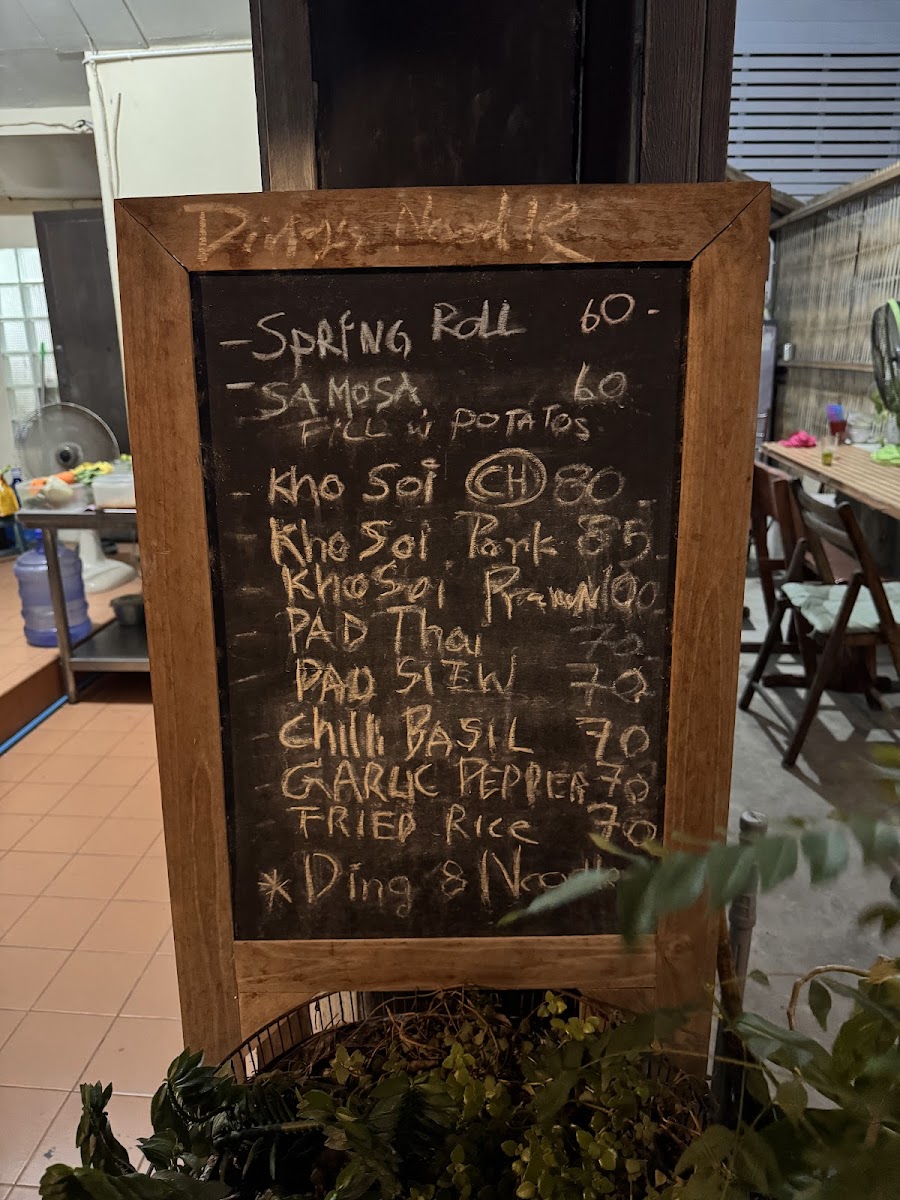 Ding's Noodle
- SPRING ROLL 60.-
- SAMOSA 60
FILL W POTATOS
- Kho Soi CH 80.-
- Kho Soi Pork 85.-
- Kho Soi Prawn 100
- PAD Thai 70
- PAD SIEW 70
- Chilli BASIL 70
- GARLIC PEPPER 70
- FRIED Rice 70
* Ding &